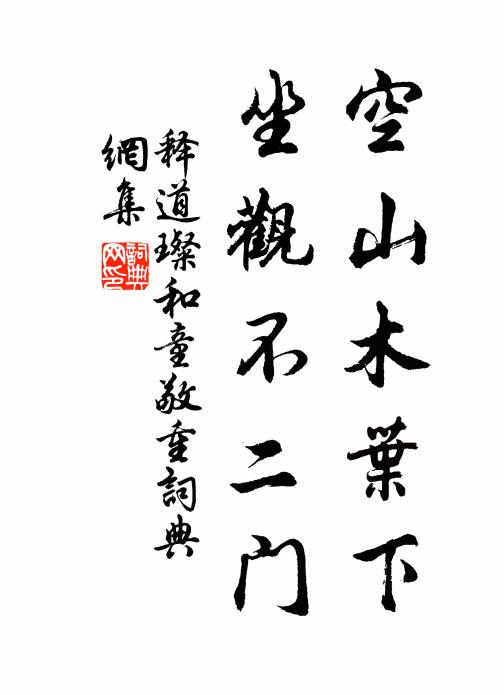 空山木葉下
坐觀不二门
释道璨和童敬重詞典
網集
詞典
网印